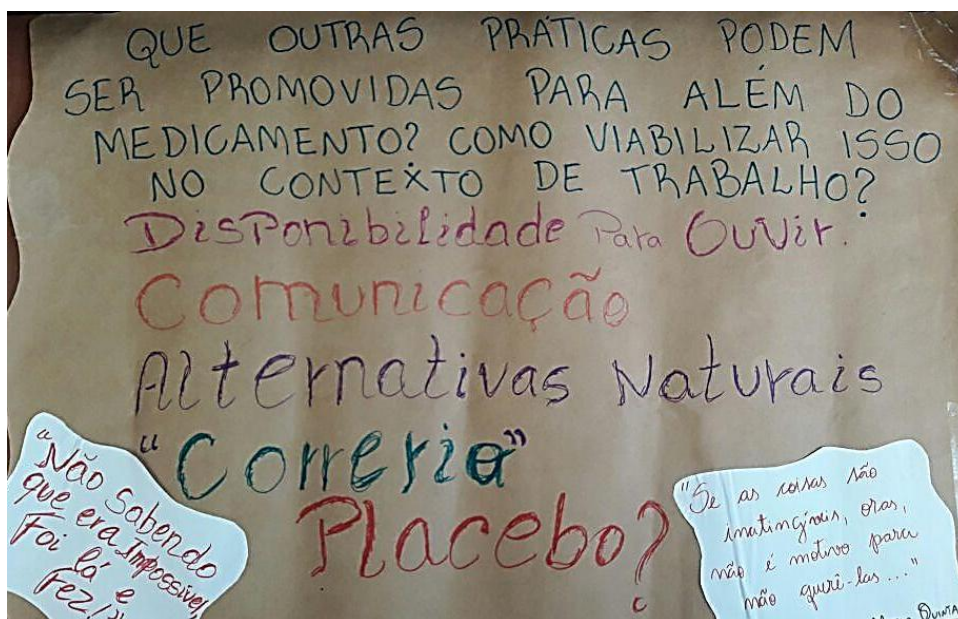 QUE OUTRAS PRÁTICAS PODEM
SER PROMOVIDAS PARA ALÉM DO
MEDICAMENTO? COMO VIABILIZAR ISSO
NO CONTEXTO DE TRABALHO?
Disponibilidade Para Ouvir.
Comunicação
Alternativas Naturais
"Correria"
Placebo?
"Não Sabendo
que era Impossível,
Foi lá e
Fez!"
"Se as coisas são
inatingíveis, oras,
não é motivo para
não querê-las..."
QUINTA